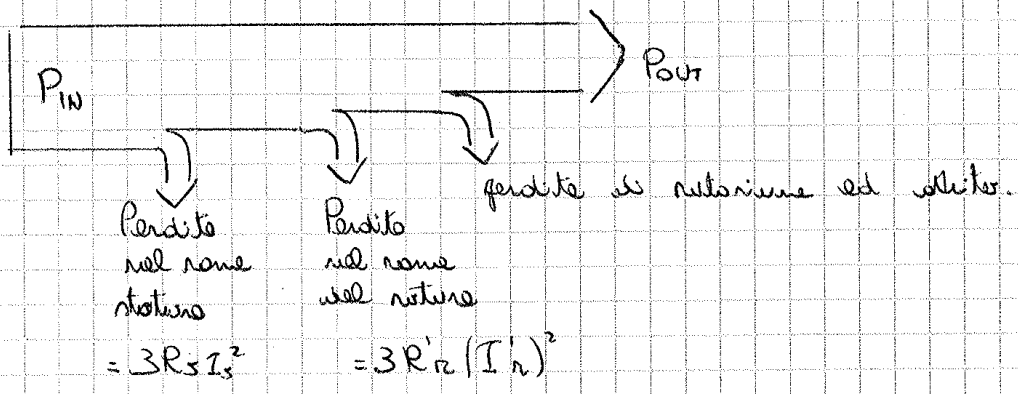 P_IN
P_OUT
perdite di rotazione ed attrito.
Perdite
nel rame
statore
= 3R_s I_s^2
Perdite
nel rame
nel rotore
= 3R'_r (I'_r)^2